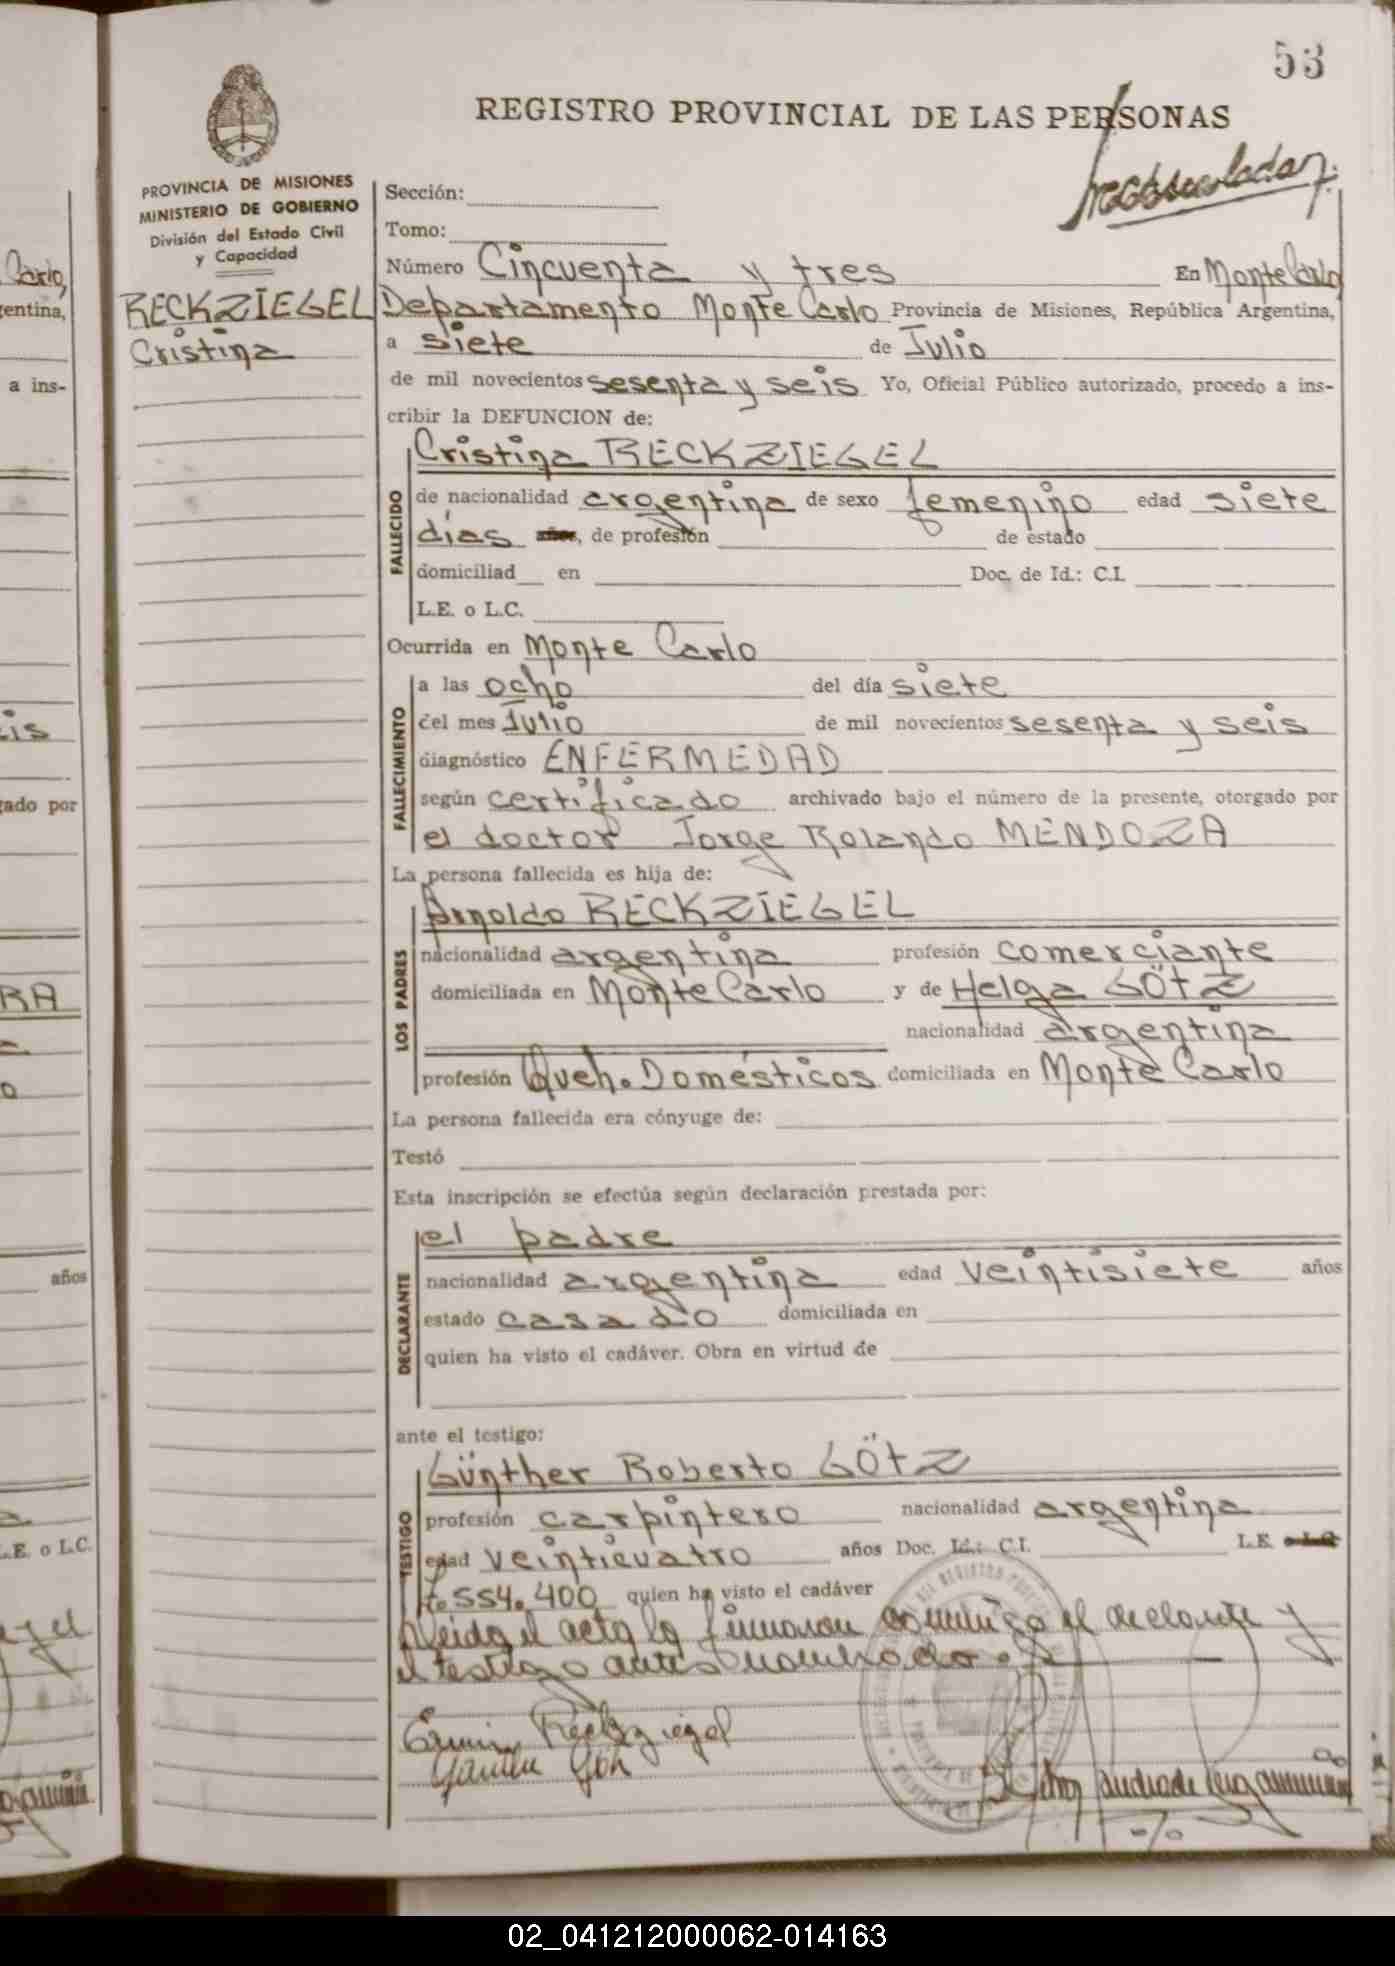 53
REGISTRO PROVINCIAL DE LAS PERSONAS
PROVINCIA DE MISIONES
MINISTERIO DE GOBIERNO
División del Estado Civil
y Capacidad
RECKZIEGEL
Cristina
Sección:
Tomo:
Número Cincuenta y tres En Monte Carlo
Departamento Monte Carlo Provincia de Misiones, República Argentina,
a siete de Julio
de mil novecientos sesenta y seis Yo, Oficial Público autorizado, procedo a ins-
cribir la DEFUNCION de:
Cristina RECKZIEGEL
FALLECIDO
de nacionalidad argentina de sexo femenino edad siete
días años, de profesión de estado
domiciliad en Doc. de Id.: C.I.
L.E. o L.C.
Ocurrida en Monte Carlo
FALLECIMIENTO
a las ocho del día siete
del mes Julio de mil novecientos sesenta y seis
diagnóstico ENFERMEDAD
según certificado archivado bajo el número de la presente, otorgado por
el doctor Jorge Rolando MENDOZA
La persona fallecida es hija de:
LOS PADRES
Arnoldo RECKZIEGEL
nacionalidad argentina profesión comerciante
domiciliada en Monte Carlo y de Helga GÖtZ
nacionalidad argentina
profesión Queh. Domésticos domiciliada en Monte Carlo
La persona fallecida era cónyuge de:
Testó
Esta inscripción se efectúa según declaración prestada por:
DECLARANTE
el padre
nacionalidad argentina edad veintisiete años
estado casado domiciliada en
quien ha visto el cadáver. Obra en virtud de
ante el testigo:
TESTIGO
Günther Roberto GÖtZ
profesión carpintero nacionalidad argentina
edad veinticuatro años Doc. Id.: C.I. L.E. o L.C.
7.554.400 quien ha visto el cadáver
leida el acta la firmaron conmigo el declante y
el testigo antes nombrado.
Reckziegel
Carlo,
gentina,
a ins-
eis
gado por
RA
años
L.E. o L.C.
02_041212000062-014163